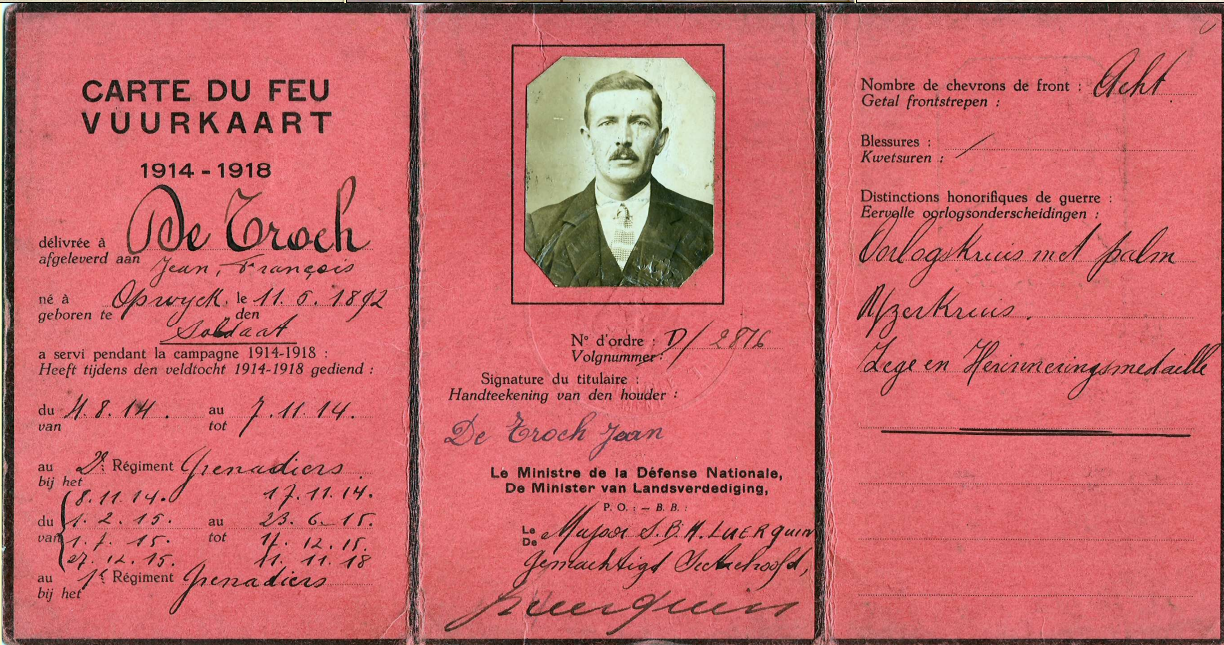 CARTE DU FEU
VUURKAART
1914 - 1918
délivrée à De Troch
afgeleverd aan Jean, François
né à Opwyck. le 11. 6. 1892
geboren te den
Soldaat
a servi pendant la campagne 1914-1918 :
Heeft tijdens den veldtocht 1914-1918 gediend :
du 4. 8. 14. au 7. 11. 14.
van tot
au 2e Régiment Grenadiers
bij het
8. 11. 14. 17. 11. 14.
du 1. 2. 15. au 23. 6. 15.
van 1. 7. 15. tot 17. 12. 15.
27. 12. 15. 11. 11. 18
au 1e Régiment Grenadiers
bij het
N° d'ordre : D/ 2876
Volgnummer :
Signature du titulaire :
Handteekening van den houder :
De Troch Jean
Le Ministre de la Défense Nationale,
De Minister van Landsverdediging,
P. O. : — B. B. :
Le
De Majoor S.B.H. LUERQUIN
Gemachtigd
Luerquin
Nombre de chevrons de front : Acht
Getal frontstrepen :
Blessures : /
Kwetsuren :
Distinctions honorifiques de guerre :
Eervolle oorlogsonderscheidingen :
Oorlogskruis met palm
Yzerkruis.
Zege en Herinneringsmedaille